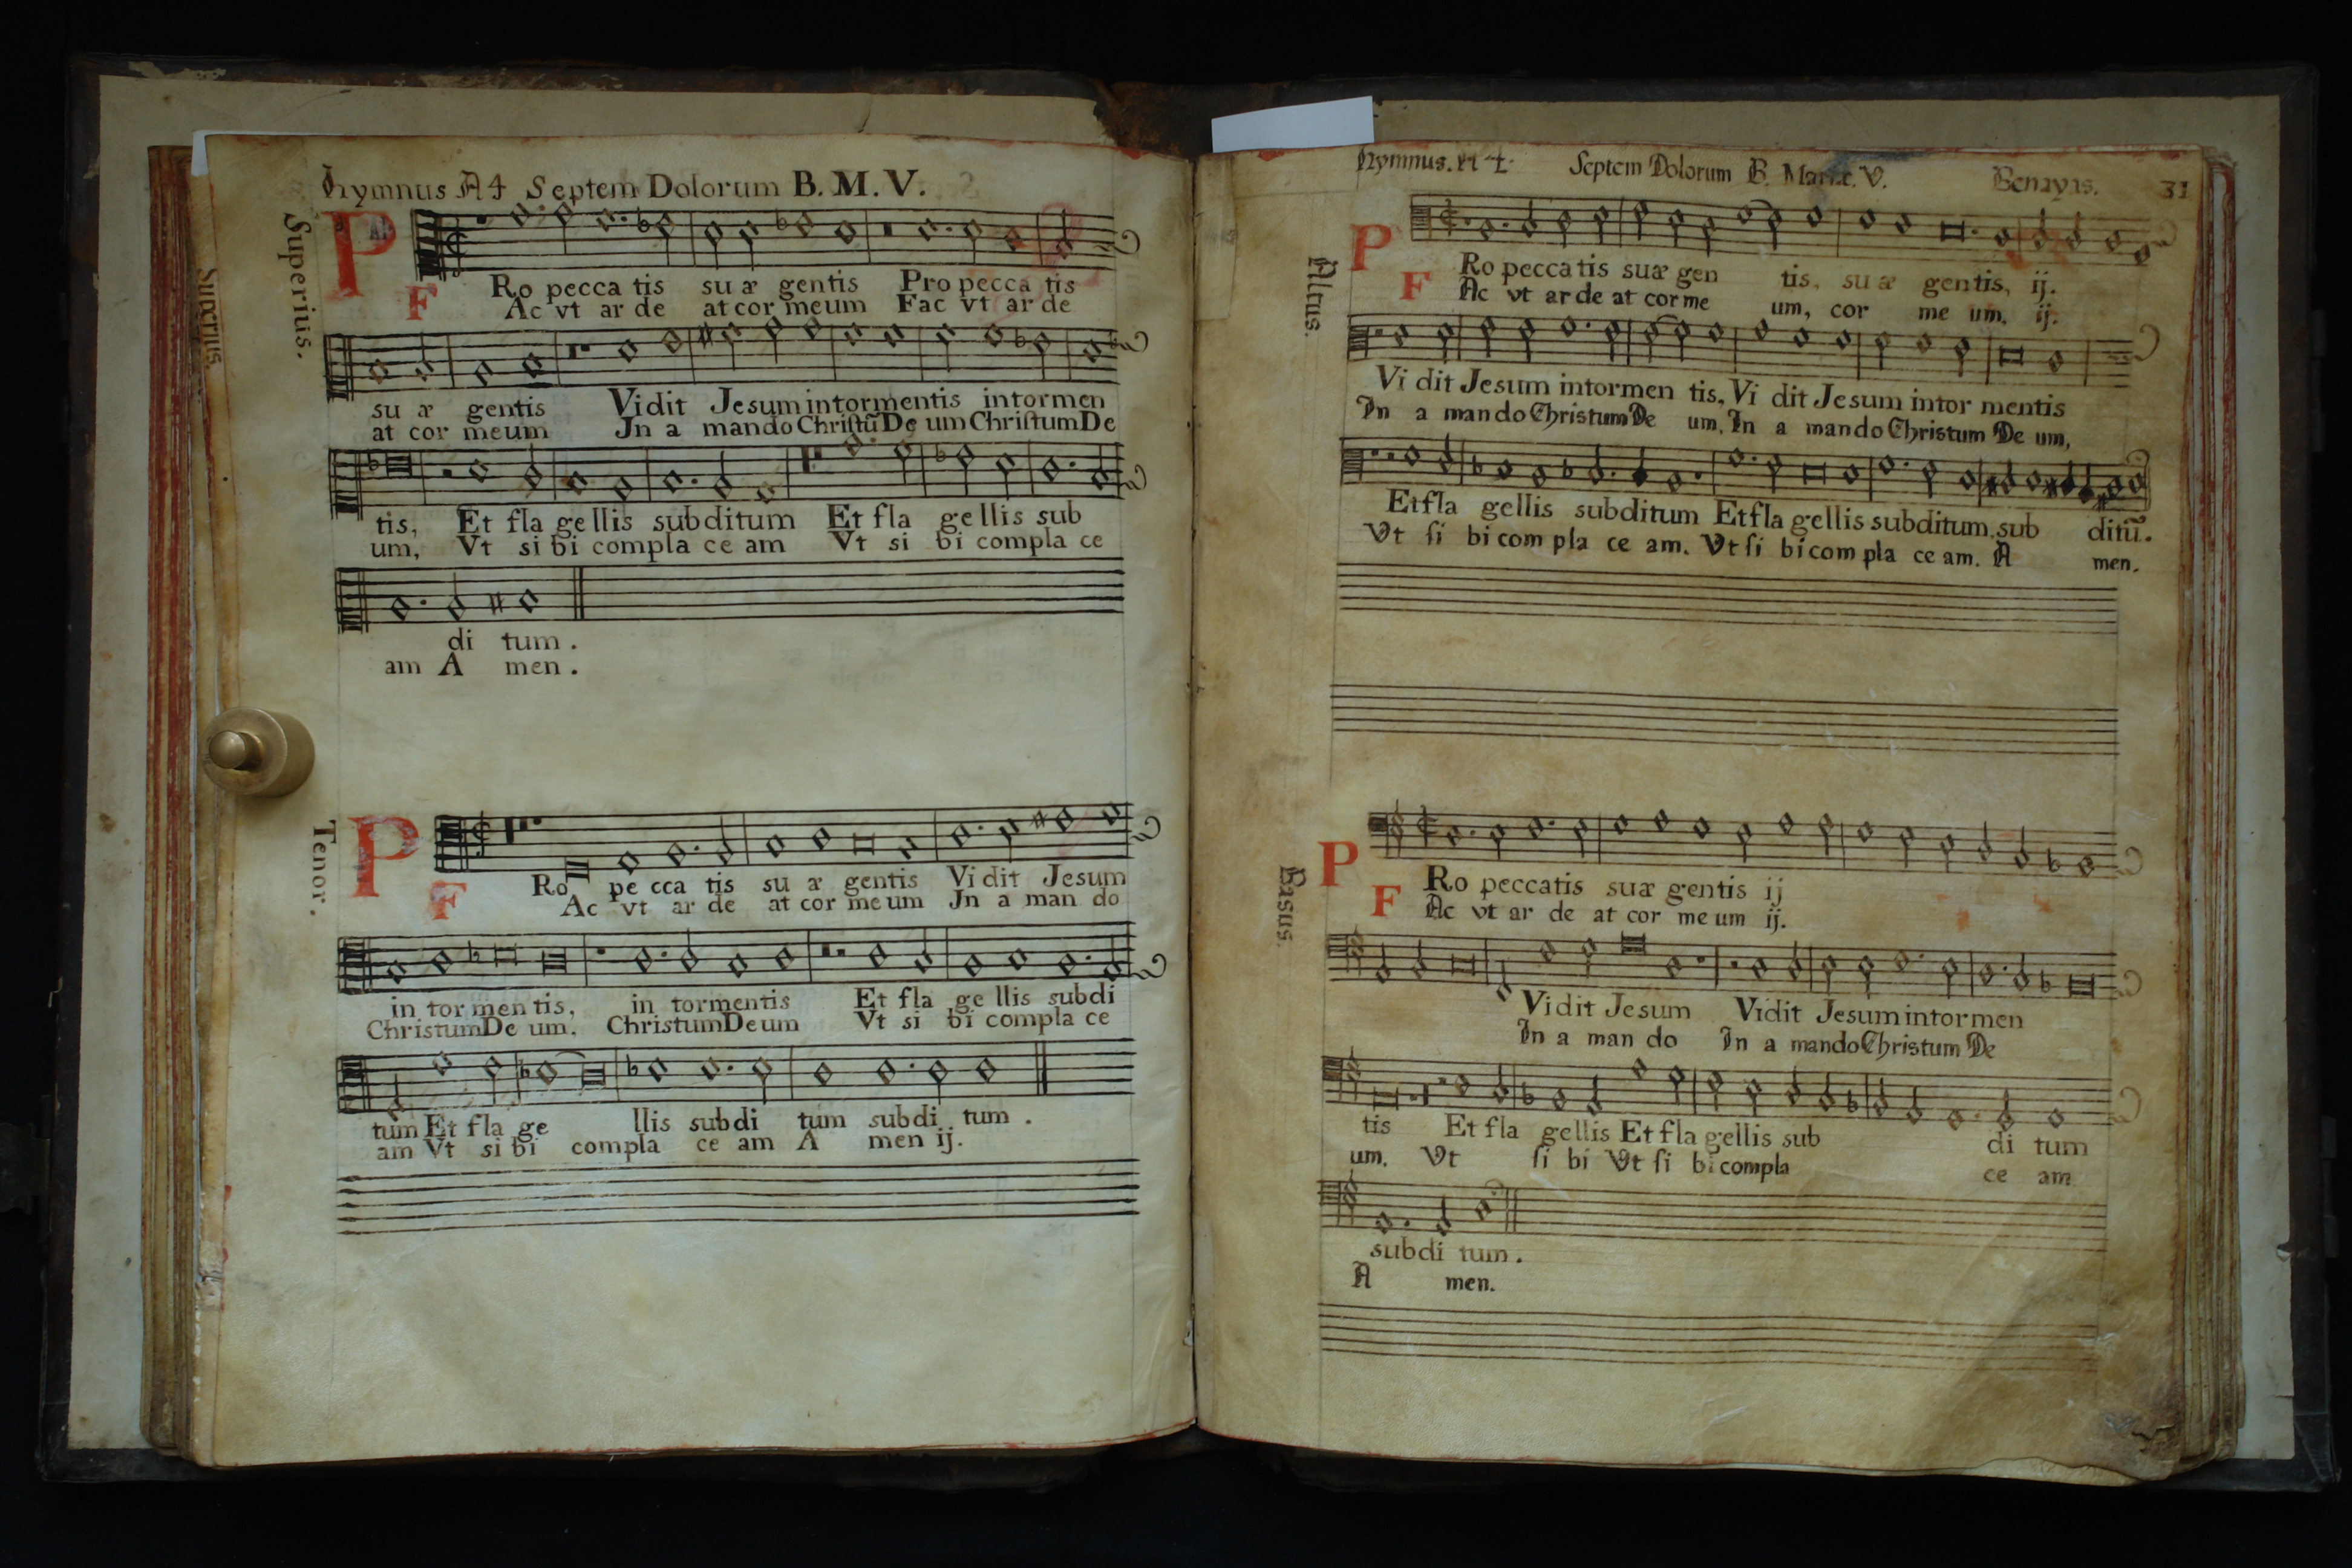 Hymnus A4 Septem Dolorum B. M. V.
Superius.
Superius.
P Ro pecca tis su æ gentis Pro pecca tis
F Ac vt ar de at cor meum Fac vt ar de
su æ gentis Vidit Jesum intormentis intormen
at cor meum Jn a mando Christũ De um Christum De
tis, Et fla gellis subditum Et fla gellis sub
um, Vt si bi compla ce am Vt si bi compla ce
di tum.
am A men.
Tenor.
P Ro pe cca tis su æ gentis Vidit Jesum
F Ac vt ar de at cor meum Jn a man do
in tormentis, in tormentis Et fla ge llis subdi
Christum De um. Christum Deum Vt si bi compla ce
tum Et fla ge llis subdi tum subdi tum.
am Vt si bi compla ce am A men ij.
Hymnus. A 4. Septem Dolorum B. Mariæ. V. 31
Altus.
P Ro peccatis suæ gen tis, su æ gentis, ij.
F Ac vt ar de at cor me um, cor me um, ij.
Vi dit Jesum intormen tis, Vi dit Jesum intor mentis
In a mando Christum De um. In a mando Christum De um,
Et fla gellis subditum Et fla gellis subditum, sub ditũ.
Vt si bi com pla ce am. Vt si bi com pla ce am. A men.
Basus.
P Ro peccatis suæ gentis ij
F Ac vt ar de at cor me um ij.
Vidit Jesum Vidit Jesum intormen
In a man do In a mando Christum De
tis Et fla gellis Et fla gellis sub di tum
um. Vt si bi Vt si bi compla ce am
subdi tum.
A men.